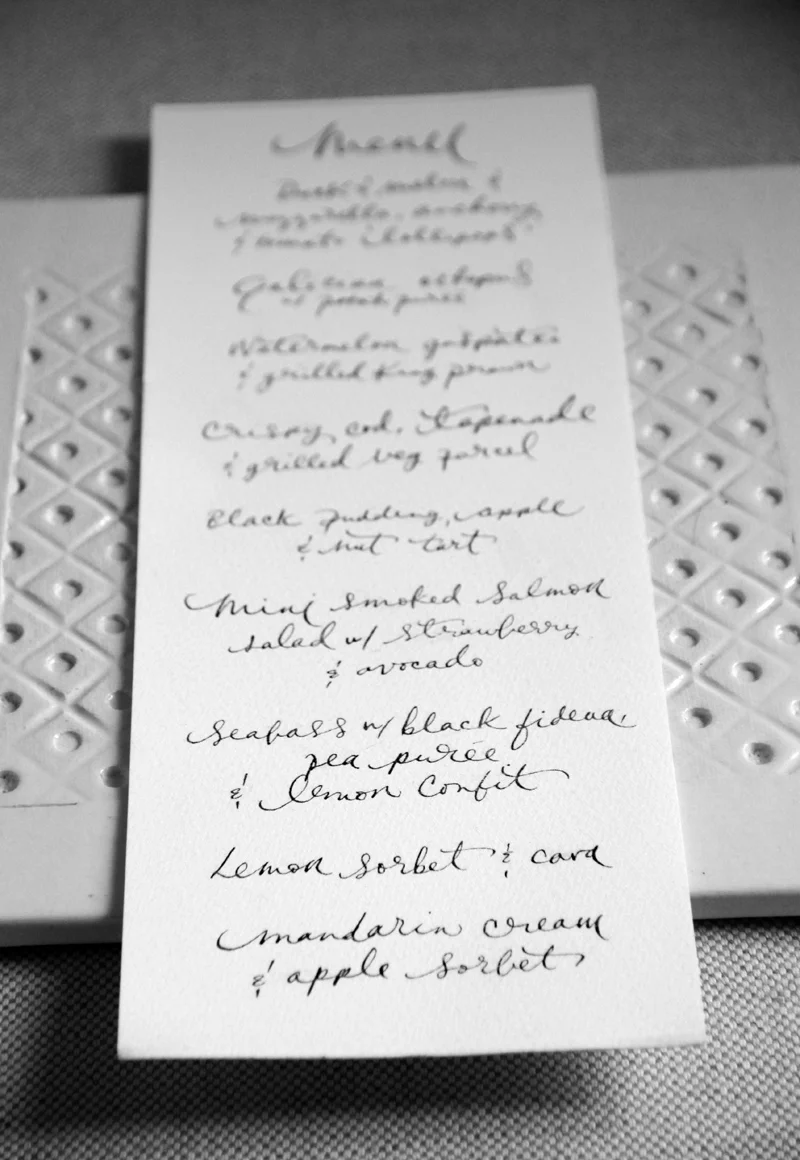 Menu
& melon &
mozzarella, anchovy
& tomato "lollipops"
Galician octopus
w/ potato puree
Watermelon gaspatcho
& grilled king prawn
Crispy cod, tapenade
& grilled veg parcel
Black pudding, apple
& nut tart
Mini smoked salmon
salad w/ strawberry
& avocado
Seabass w/ black fideua,
pea purée
& lemon confit
Lemon sorbet & cava
mandarin cream
& apple sorbet